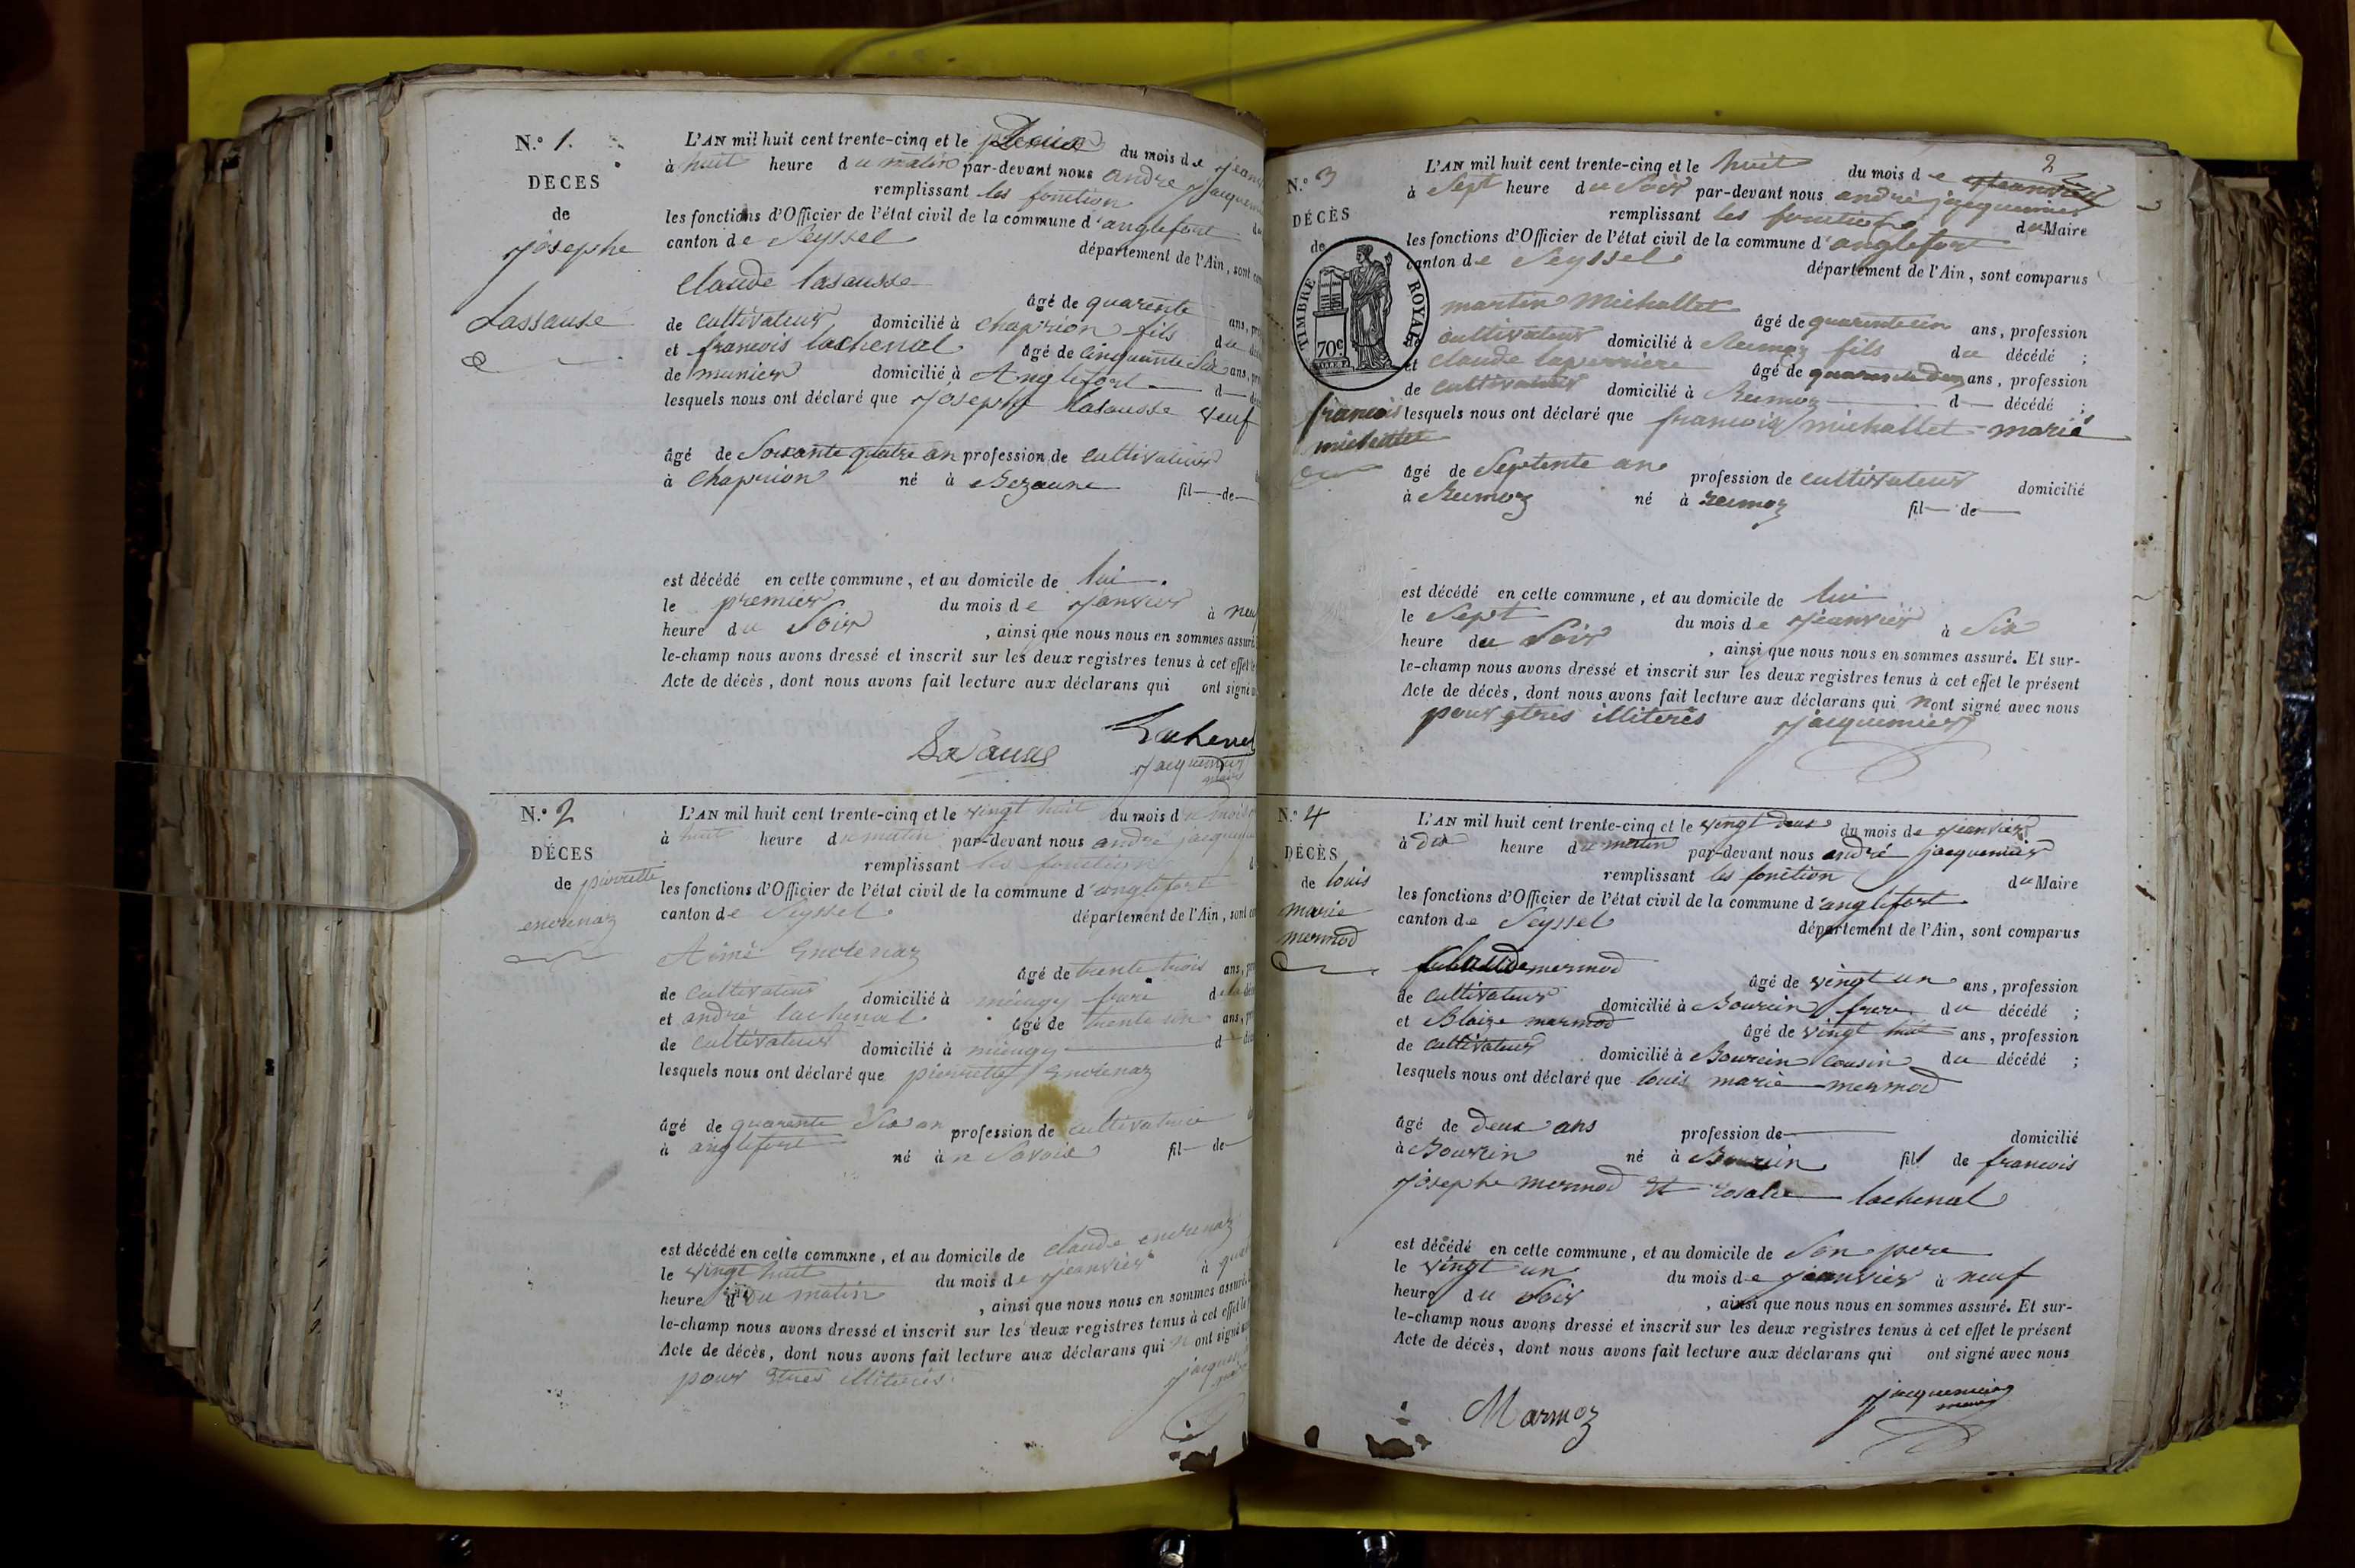 N.° 1.
DÉCES
de
josephe
Lassause
L'AN mil huit cent trente-cinq et le du mois de
à huit heure du matin par-devant nous andré
remplissant les fonction
les fonctions d'Officier de l'état civil de la commune d'anglefort
canton de Seyssel département de l'Ain, sont
Claude lasausse âgé de quarente ans,
de cultivateur domicilié à Chaprion fils du
et francois lachenal âgé de cinquante Six ans,
de munier domicilié à Anglefort d
lesquels nous ont déclaré que joseph lasausse veuf
âgé de Soixante quatre an profession de cultivateur
à Chaprion né à Bezaune fil de
est décédé en cette commune, et au domicile de lui.
le premier du mois de janvier à
heure du Soir, ainsi que nous nous en sommes assuré
le-champ nous avons dressé et inscrit sur les deux registres tenus à cet effet le
Acte de décès, dont nous avons fait lecture aux déclarans qui ont signé
Lachenal
jacquemier
N.° 2
DÉCES
de pierrette
encrenaz
L'AN mil huit cent trente-cinq et le vingt huit du mois d
à huit heure du matin par-devant nous andré
remplissant les fonction
les fonctions d'Officier de l'état civil de la commune d'anglefort
canton de Seyssel département de l'Ain, sont
Aimé encrenaz âgé de trente trois ans,
de cultivateur domicilié à mieugy frere de la
et andré lachenal âgé de trente un ans,
de cultivateur domicilié à mieugy d
lesquels nous ont déclaré que pierrette encrenaz
âgé de quarente Six an profession de cultivatrice
à anglefort né à n Savoie fil de
est décédé en cette commune, et au domicile de claude encrenaz
le vingt huit du mois de jeanvier à
heure du matin, ainsi que nous nous en sommes assuré
le-champ nous avons dressé et inscrit sur les deux registres tenus à cet effet le
Acte de décès, dont nous avons fait lecture aux déclarans qui n ont signé
pour etres illiterés.
2
N.° 3
DÉCÈS
de
TIMBRE ROYAL
70c
francois
michallet
L'AN mil huit cent trente-cinq et le huit du mois de jeanvier
à Sept heure du Soir par-devant nous andré jacquemier
remplissant les fonction du Maire
les fonctions d'Officier de l'état civil de la commune d'anglefort
canton de Seyssel département de l'Ain, sont comparus
martin Michallet âgé de quarente un ans, profession
cultivateur domicilié à Reumoz fils du décédé ;
et claude laperriere âgé de quarente deux ans, profession
de cultivateur domicilié à Reumoz d décédé ;
lesquels nous ont déclaré que francois michallet marié
âgé de Septente an profession de cultivateur domicilié
à Reumoz né à reumoz fil de
est décédé en cette commune, et au domicile de lui
le Sept du mois de jeanvier à Six
heure du Soir, ainsi que nous nous en sommes assuré. Et sur-
le-champ nous avons dressé et inscrit sur les deux registres tenus à cet effet le présent
Acte de décès, dont nous avons fait lecture aux déclarans qui n'ont signé avec nous
pour etres illiterés jacquemier
N.° 4
DÉCÈS
de louis
marie
mermod
L'AN mil huit cent trente-cinq et le vingt deux du mois de jeanvier
à dix heure du matin par-devant nous andré jacquemier
remplissant les fonction du Maire
les fonctions d'Officier de l'état civil de la commune d'anglefort
canton de Seyssel département de l'Ain, sont comparus
Claude mermod âgé de vingt un ans, profession
de cultivateur domicilié à Bourcin frere du décédé ;
et Blaize mermod âgé de vingt huit ans, profession
de cultivateur domicilié à Bourcin cousin du décédé ;
lesquels nous ont déclaré que louis marie mermod
âgé de deux ans profession de domicilié
à Bourcin né à Bourcin fil de francois
josephe mermod et rosalie lachenal
est décédé en cette commune, et au domicile de Son pere
le vingt un du mois de jeanvier à neuf
heure du Soir, ainsi que nous nous en sommes assuré. Et sur-
le-champ nous avons dressé et inscrit sur les deux registres tenus à cet effet le présent
Acte de décès, dont nous avons fait lecture aux déclarans qui ont signé avec nous
Marmoz
jacquemier